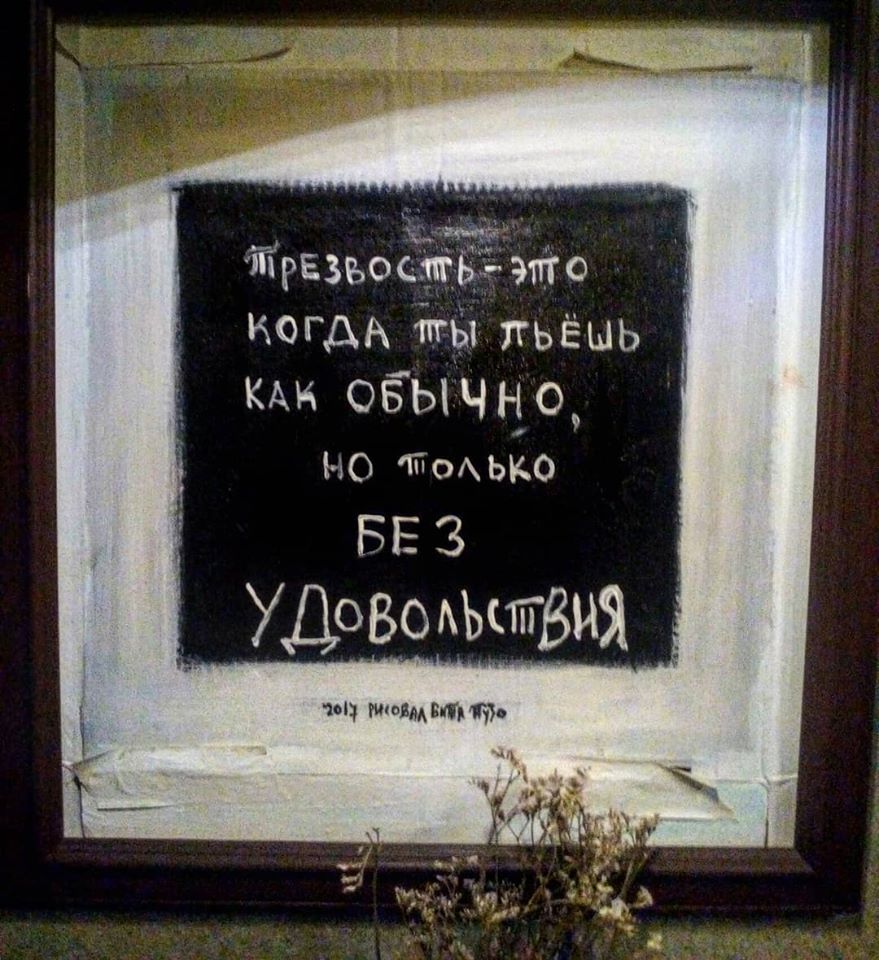 ТРЕЗВОСТЬ - ЭТО
КОГДА ТЫ ПЬЁШЬ
КАК ОБЫЧНО,
НО ТОЛЬКО
БЕЗ
УДОВОЛЬСТВИЯ
2017 РИСОВАЛ ВИТЯ ПУЗО